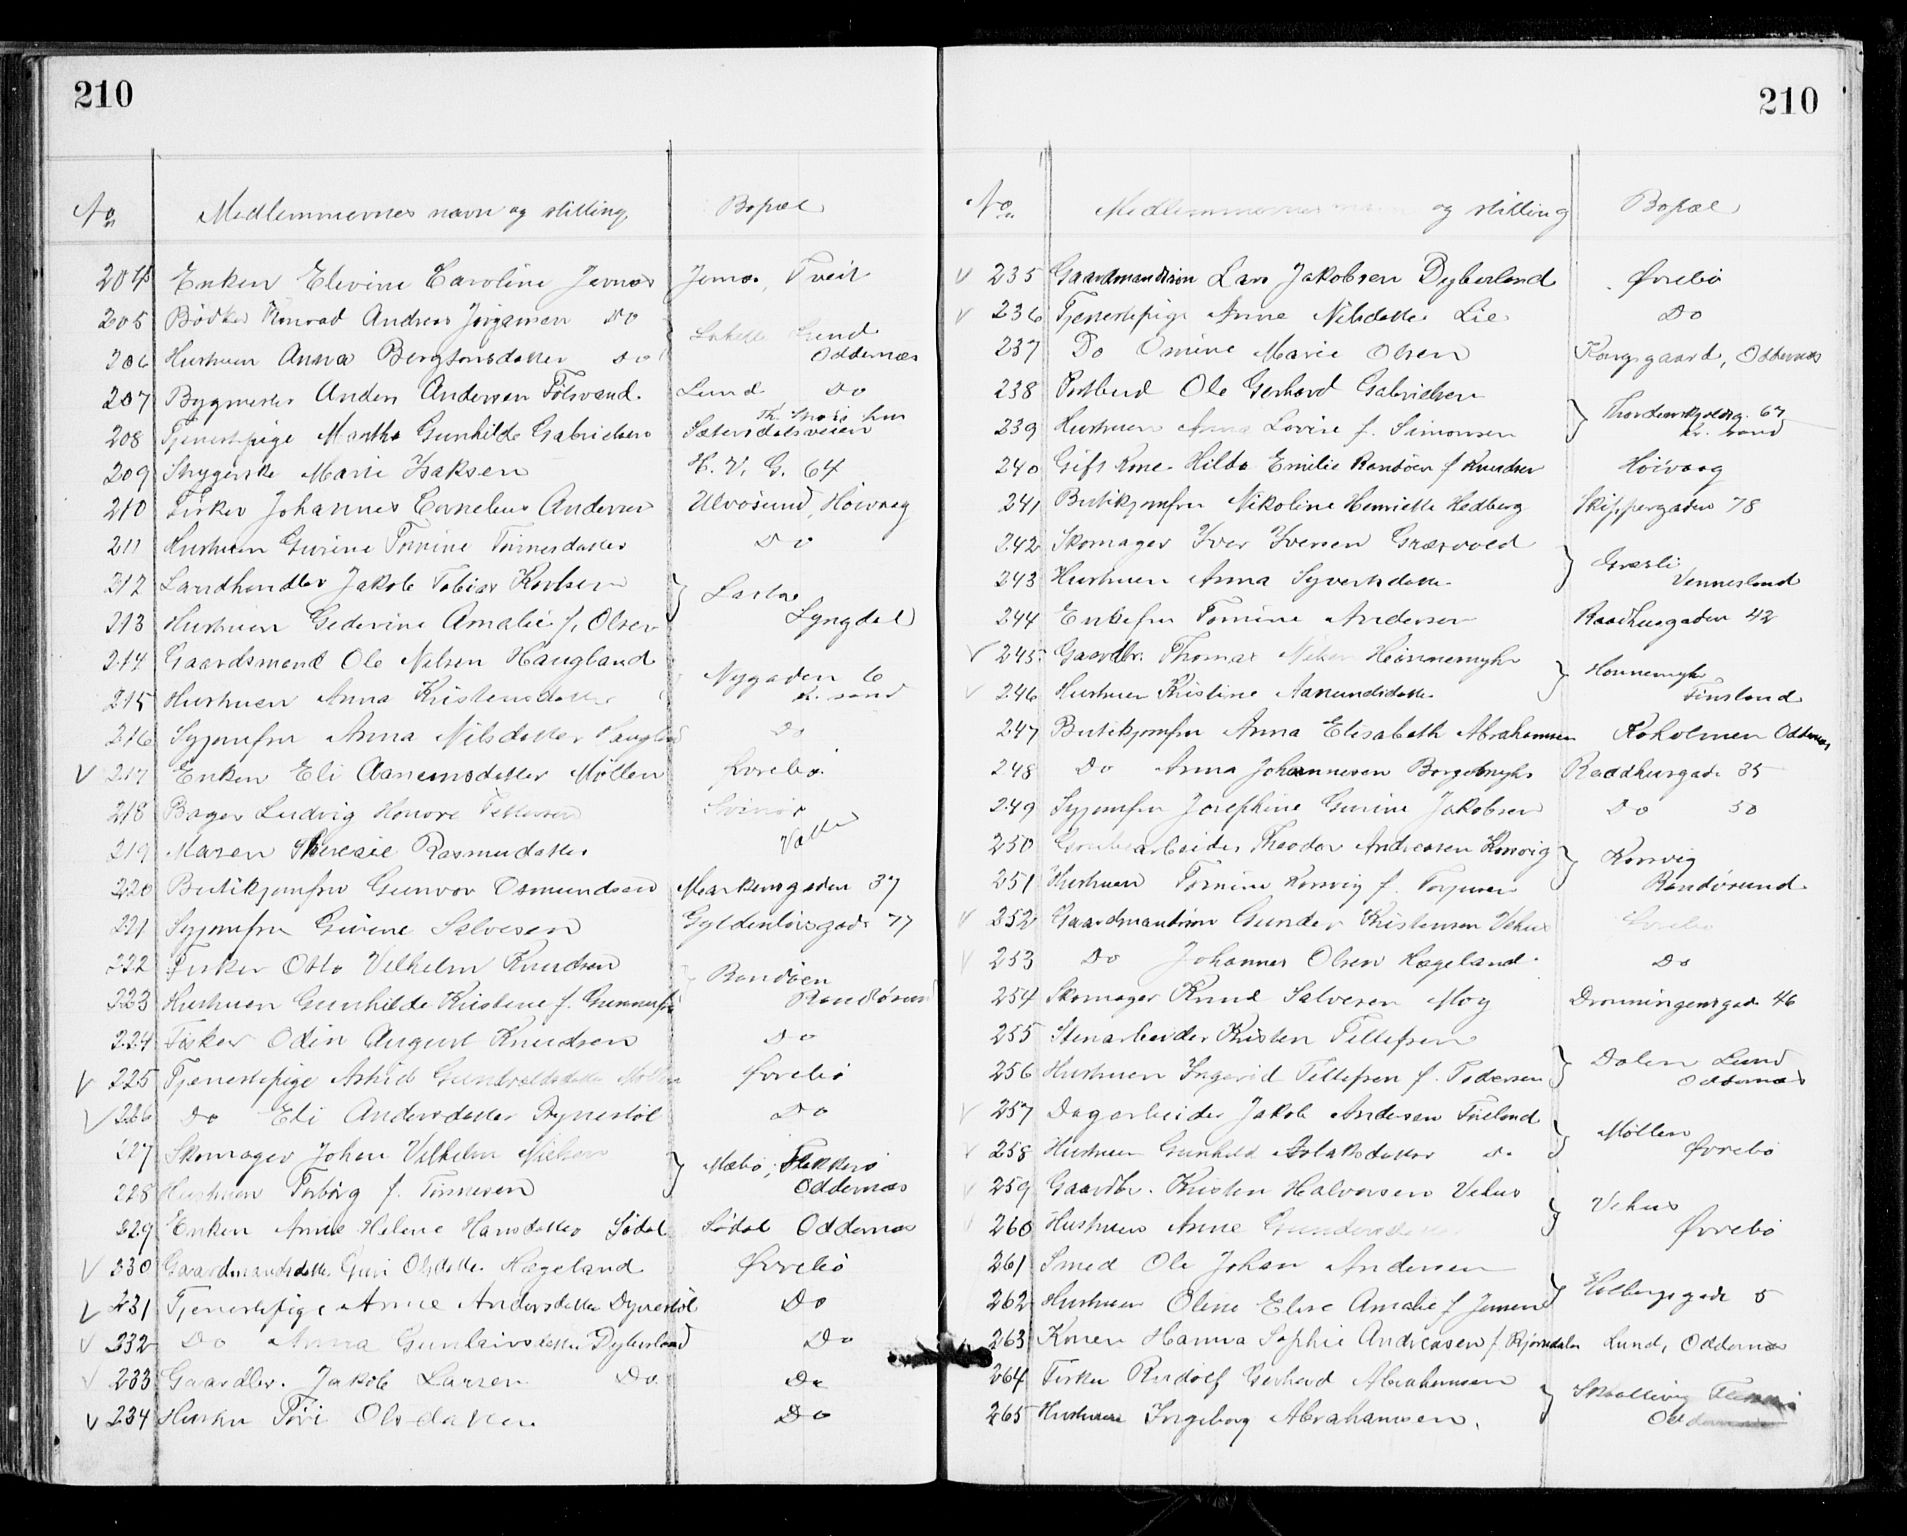 210
No Medlemmernes navn og stilling Bopæl
204 Enken Elevine Caroline Jernæs Jernæs, Tveit
205 Bødker Konrad Andreas Jørgensen Do
Lund
206 Hustruen Anna Bergtonsdatter Do Oddernæs
207 Bygmester Anders Andersen Følsvand. Lund Do
208 Tjenestepige Marthe Gunhilde Gabrielsen Sætersdalsveien
209 Strygerske Marie Isaksen H. V. G. 64
210 Fisker Johannes Cornelius Andersen Ulvøsund, Høivaag
211 Hustruen Gurine Tomine Tønnesdatter Do
212 Landhandler Jakob Tobias Karlsen
213 Hustruen Gederine Amalie f. Olsen Lyngdal
214 Gaardsmand Ole Nelsen Haugland
Nygaden 6
215 Hustruen Anna Kristensdatter Kr. sand
216 Syjomfru Anna Nilsdatter Haugland Do
V 217 Enken Eli Aanensdatter Møllen Øvrebø
218 Bager Ludvig Honore Pettersen Svinør
219 Maren Therecie Rasmusdatter Valle
220 Butikjomfru Gunvor Osmundsen Markensgaden 37
221 Syjomfru Givine Salvesen Gyldenløvsgade 77
222 Fisker Otto Vilhelm Knudsen
Randøen
223 Hustruen Gunhilde Kristine f. Randøsund
224 Fisker Odin August Knudsen Do
V 225 Tjenestepige Astrid Gundvaldsdatter Møllen Øvrebø
V 226 Do Eli Andersdatter Dynestøl Do
227 Skomager Johan Vilhelm Nielsen
Mæbø, Flekkerø
228 Hustruen Torborg f. Tønnesen Oddernæs
229 Enken Anne Helene Hansdatter Sødal Sødal Oddernæs
V 230 Gaardmandsdatter Guri Olsdatter Hægeland Øvrebø
V 231 Tjenestepige Anne Andersdatter Dynestøl Do
V 232 Do Anna Gunleivsdatter Dyberland Do
V 233 Gaardbr. Jakob Larsen Do Do
V 234 Hustru Tori Olsdatter Do
210
No Medlemmernes navn og stilling Bopæl
V 235 Gaardmandssøn Lars Jakobsen Dyberland Øvrebø
V 236 Tjenestepige Anne Nilsdatter Lie Do
237 Do Omine Marie Olsen Kongsgaard, Oddernæs
238 Postbud Ole Gerhard Gabrielsen
Thordenskjoldsg. 67
239 Hustruen Anna Lovise f. Simonsen Kr. sand
240 Gift Kone Hilda Emilie Randøen f Knudsen Høivaag
241 Butikjomfru Nikoline Henriette Hedberg Skippergaden 78
242 Skomager Iver Iversen Græsvold
Græsli
243 Hustruen Anna Syvertsdatter Vennesland
244 Enkefru Tomine Andersen Raadhusgaden 42
V 245 Gaardbr. Thomas Hønnemyhr
Honnemyhr
V 246 Hustruen Kristine Aanundsdatter Finsland
247 Butikjomfru Anna Elisabeth Abrahamsen Koholmen Oddernæs
248 Do Anna Johannesen Borgemyhr Raadhusgade 35
249 Syjomfru Josephine Gurine Jakobsen Do 50
250 Grubearbeider Theodor Andreasen Korsvig
Korsvig
251 Hustruen Tomine Korsvig f. Torjusen Randøsund
V 252 Gaardmandssøn Gunder Kristensen Vehus Øvrebø
V 253 Do Johannes Olsen Hægeland Do
254 Skomager Knud Salvesen Moy Dronningensgade 46
255 Stenarbeider Kristen Tellefsen
Dalen Lund
256 Hustruen Ingerid Tellefsen f. Pedersen Oddernæs
V 257 Dagarbeider Jakob Andersen
Møllen
V 258 Hustruen Gunhild Aslaksdatter Do Øvrebø
V 259 Gaardbr. Kristen Halvorsen Vehus
Vehus
260 Hustruen Anne Gundersdatter Øvrebø
261 Smed Ole Johan Andersen
Holbergsgade 5
262 Hustruen Oline Elise Amalie f Jensen
263 Konen Hanna Sophie Andreasen f. Bjørndalen Lund, Oddernæs
264 Fisker Rudolf Gerhard Abrahamsen
265 Hustruen Ingeborg Abrahamsen. Oddernæs